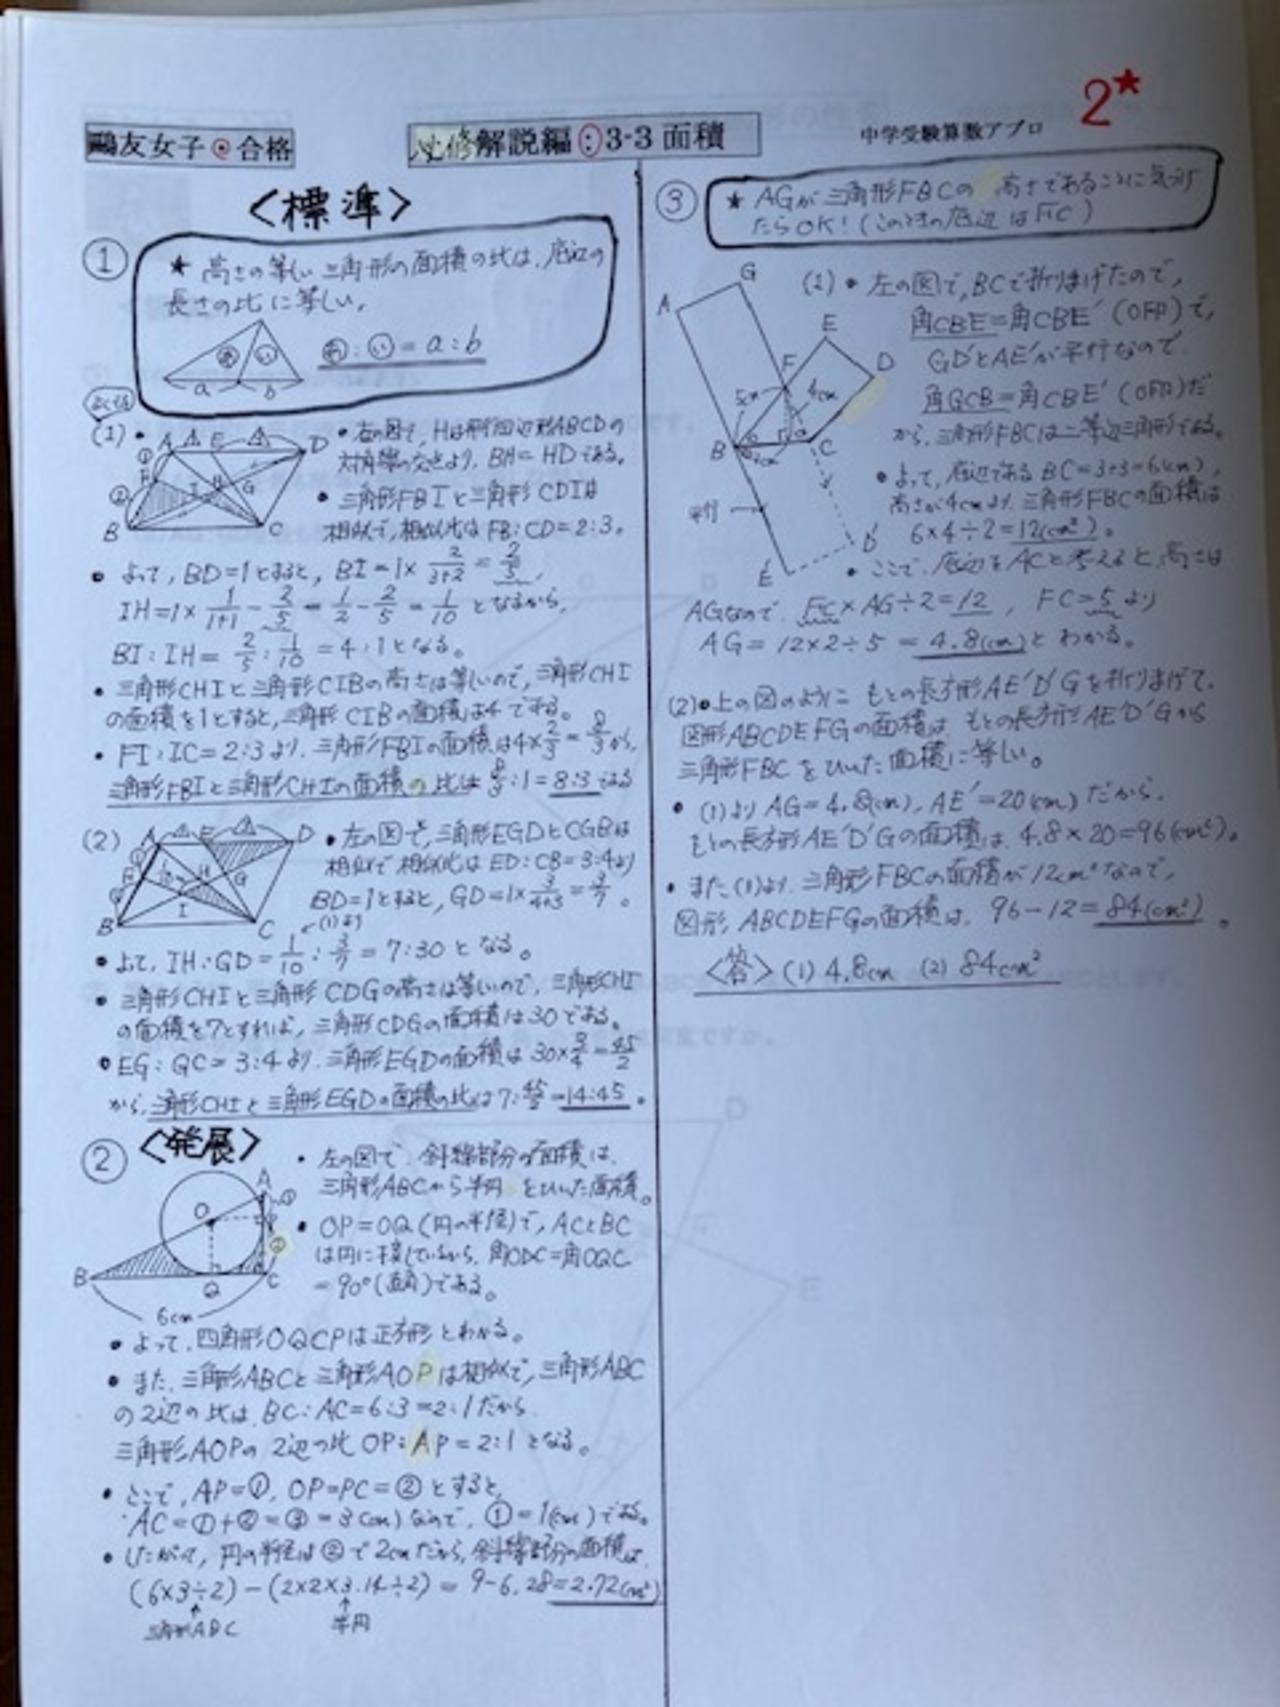 2★
鷗友女子◉合格
必修解説編:3-3 面積
中学受験算数アプロ
<標準>
①
★ 高さの等しい三角形の面積の比は、底辺の
長さの比に等しい。
あ い
a b
あ:い=a:b
(1)
・左の図で、Hは平行四辺形ABCDの
対角線の交点より、BH=HDである。
・三角形FBIと三角形CDIは
相似で、相似比は FB:CD=2:3。
・よって、BD=1とすると、BI=1×2/(3+2)=2/5、
IH=1×1/(1+1)-2/5=1/2-2/5=1/10 となるから、
BI:IH=2/5:1/10=4:1となる。
・三角形CHIと三角形CIBの高さは等しいので、三角形CHI
の面積を1とすると、三角形CIBの面積は4である。
・FI:IC=2:3より、三角形FBIの面積は4×2/3=8/3から、
三角形FBIと三角形CHIの面積の比は 8/3:1=8:3である
(2)
・左の図で、三角形EGDとCGBは
相似で相似比は ED:CB=3:4より
BD=1とすると、GD=1×3/(4+3)=3/7。
(1)より
・よって、IH:GD=1/10:3/7=7:30となる。
・三角形CHIと三角形CDGの高さは等しいので、三角形CHI
の面積を7とすれば、三角形CDGの面積は30である。
・EG:GC=3:4より、三角形EGDの面積は30×3/4=45/2
から、三角形CHIと三角形EGDの面積の比は7:45/2=14:45。
② <発展>
・左の図で、斜線部分の面積は、
三角形ABCから半円をひいた面積。
・OP=OQ(円の半径)で、ACとBC
は円に接しているから、角OPC=角OQC
=90°(直角)である。
A O B Q C
6cm
・よって、四角形OQCPは正方形とわかる。
・また、三角形ABCと三角形AOPは相似で、三角形ABC
の2辺の比は、BC:AC=6:3=2:1だから、
三角形AOPの2辺の比 OP:AP=2:1となる。
・ここで、AP=①、OP=PC=②とすると、
AC=①+②=③=3(cm)なので、①=1(cm)である。
・したがって、円の半径は②で2cmだから、斜線部分の面積は、
(6×3÷2)-(2×2×3.14÷2)=9-6.28=2.72(cm²)
三角形ABC
半円
③
★ AGが三角形FBCの高さであることに気づけ
たらOK!(このときの底辺はFC)
A G E F D B C
5cm 4cm
平行
D' E'
(1)・左の図で、BCで折りまげたので、
角CBE=角CBE'(○印)で、
GD'とAE'が平行なので、
角GCB=角CBE'(○印)だ
から、三角形FBCは二等辺三角形である。
・よって、底辺である BC=3+3=6(cm)、
高さが4cmより、三角形FBCの面積は
6×4÷2=12(cm²)。
・ここで、底辺をACと考えると、高さは
AGなので、FC×AG÷2=12、FC=5より
AG=12×2÷5=4.8(cm)とわかる。
(2)・上の図のように、もとの長方形AE'D'Gを折りまげて、
図形ABCDEFGの面積は、もとの長方形AE'D'Gから
三角形FBCをひいた面積に等しい。
・(1)より AG=4.8(cm)、AE'=20(cm)だから、
もとの長方形AE'D'Gの面積は、4.8×20=96(cm²)。
・また(1)より、三角形FBCの面積が12cm²なので、
図形ABCDEFGの面積は、96-12=84(cm²)。
<答>(1) 4.8cm (2) 84cm²